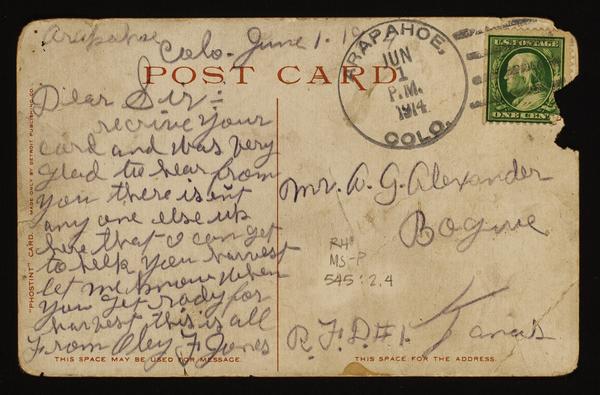 Arapahoe
Colo. June 1. 19
POST CARD
ARAPAHOE,
JUN
1
P.M.
1914
COLO.
U.S. POSTAGE
ONE CENT
Dear Sir :
recrive your
card and was very
glad to hear from
you there isent
any one else up
here that I can get
to help you harvest
let me know when
you get ready for
harvest this is all
From Oley F Jones
Mr. A. G. Alexander
Bogue
R.F.D.#1. Kansas
RH
MS-P
545:2.4
"PHOSTINT" CARD. MADE ONLY BY DETROIT PUBLISHING CO.
THIS SPACE MAY BE USED FOR MESSAGE.
THIS SPACE FOR THE ADDRESS.